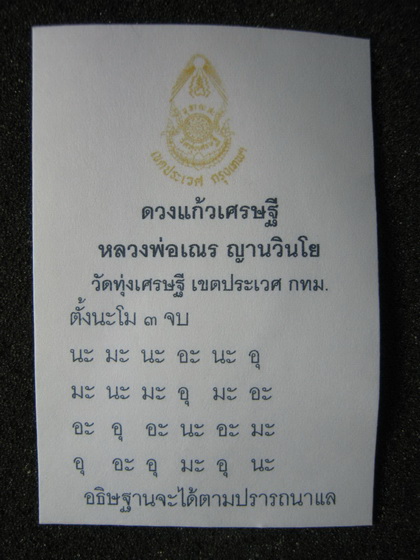 เขตประเวศ กรุงเทพฯ
ดวงแก้วเศรษฐี
หลวงพ่อเณร ญานวินโย
วัดทุ่งเศรษฐี เขตประเวศ กทม.
ตั้งนะโม ๓ จบ
นะ มะ นะ อะ นะ อุ
มะ นะ มะ อุ มะ อะ
อะ อุ อะ นะ อะ มะ
อุ อะ อุ มะ อุ นะ
อธิษฐานจะได้ตามปรารถนาแล